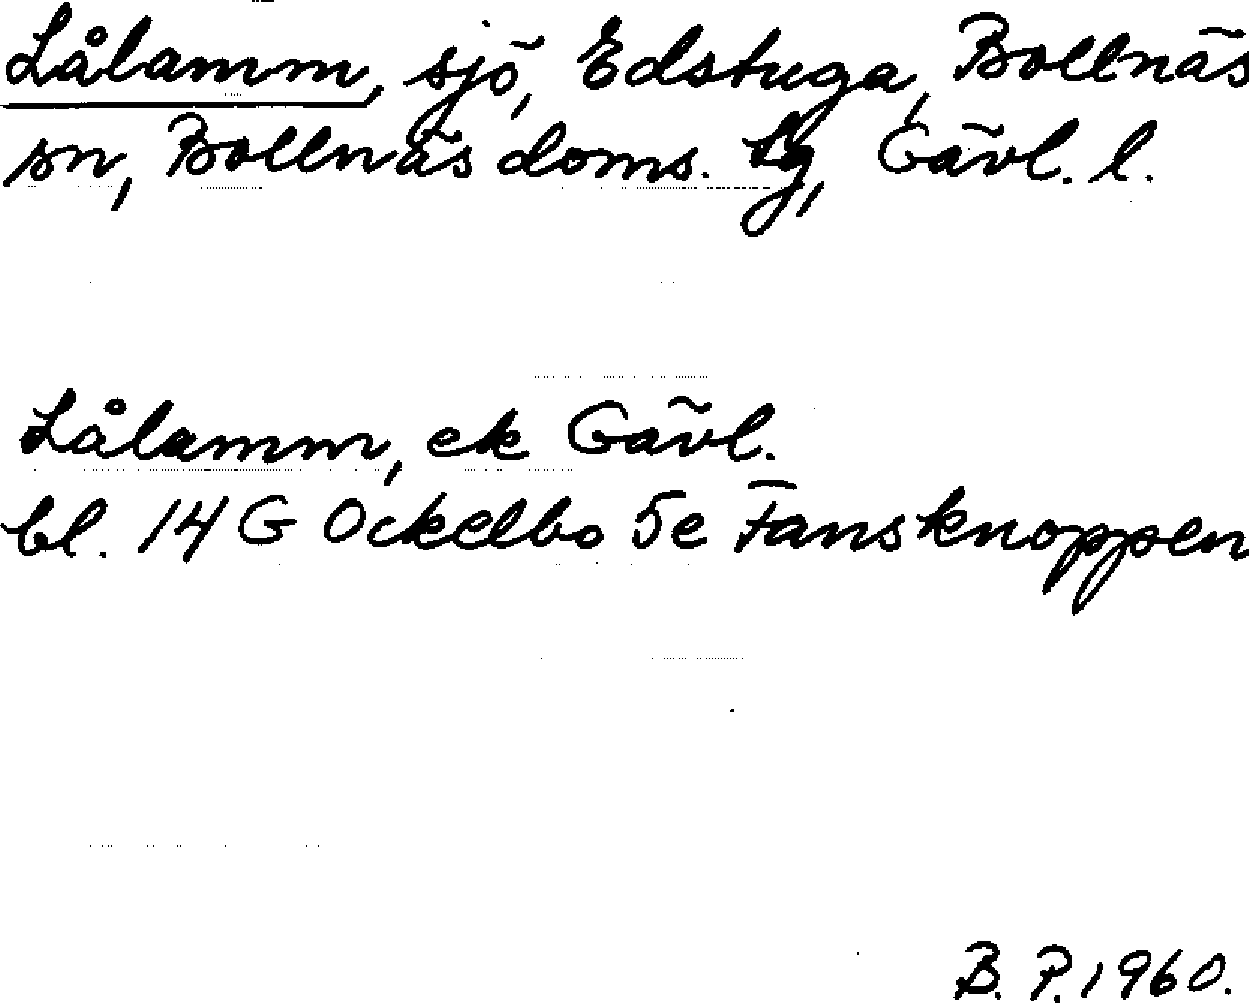 Lålamm, sjö, Edstuga, Bollnäs
sn, Bollnäs doms. lg, Gävl. l.
Lålamm, ek Gävl.
bl. 14 G Ockelbo 5e Fansknoppen
B. P. 1960.